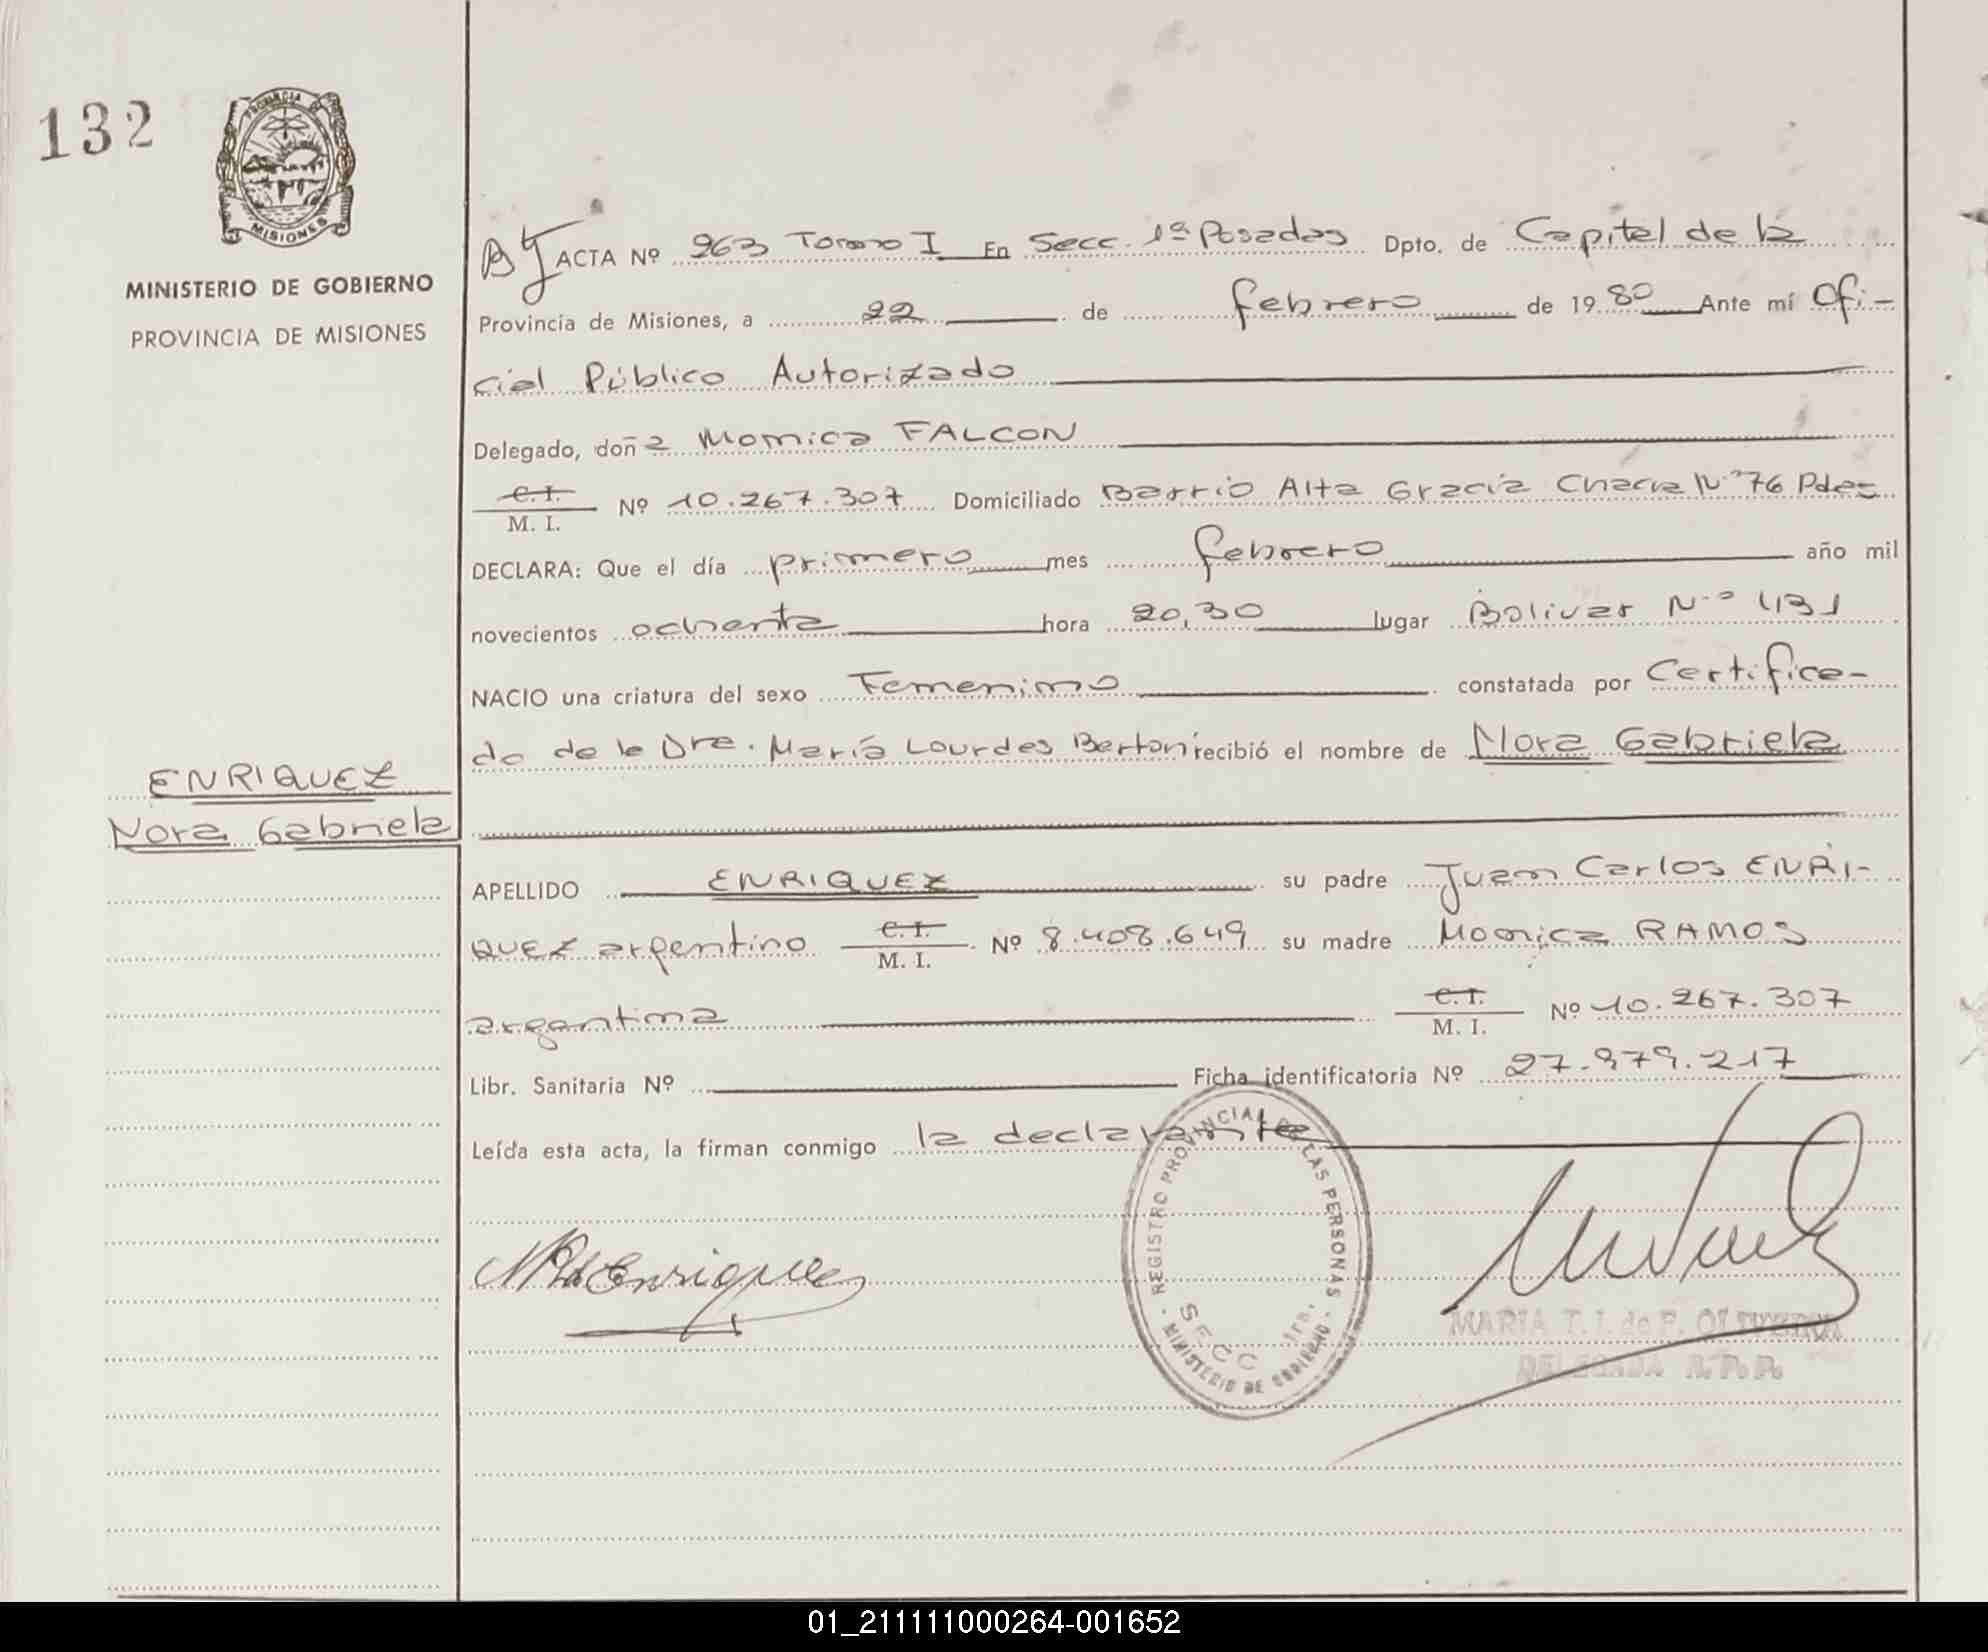 132
PROVINCIA
MISIONES
MINISTERIO DE GOBIERNO
PROVINCIA DE MISIONES
ACTA Nº 263 Tomo I En Secc. 1ª Posadas Dpto. de Capital de la
Provincia de Misiones, a 22 de febrero de 1980 Ante mí Ofi-
cial Público Autorizado
Delegado, doña Monica FALCON
C.I. M. I. Nº 10.267.307 Domiciliado Barrio Alta Gracia Chacra Nº 76 Pdas
DECLARA: Que el día primero mes febrero año mil
novecientos ochenta hora 20,30 lugar Bolivar Nº 431
NACIO una criatura del sexo Femenino constatada por Certifica-
do de la Dra. María Lourdes Bertoni recibió el nombre de Nora Gabriela
ENRIQUEZ
Nora Gabriela
APELLIDO ENRIQUEZ su padre Juan Carlos ENRI-
QUEZ argentino C.I. M. I. Nº 8.408.649 su madre Monica RAMOS
argentina C.I. M. I. Nº 10.267.307
Libr. Sanitaria Nº Ficha identificatoria Nº 27.979.217
Leída esta acta, la firman conmigo la declarante
REGISTRO PROVINCIAL DE LAS PERSONAS
SECC 1ra.
MINISTERIO DE GOBIERNO
MARIA T. I. de P.
DELEGADA R. P. P.
01_211111000264-001652